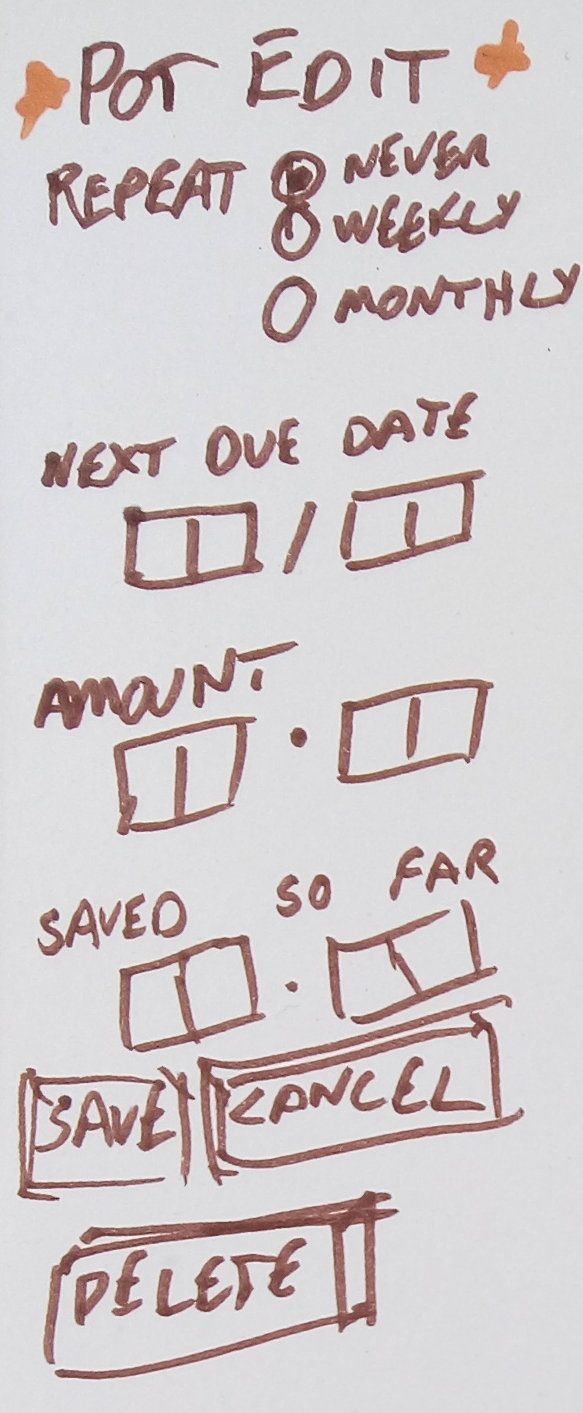 POT EDIT
REPEAT NEVER
WEEKLY
MONTHLY
NEXT DUE DATE
/
AMOUNT
.
SAVED SO FAR
.
SAVE CANCEL
DELETE